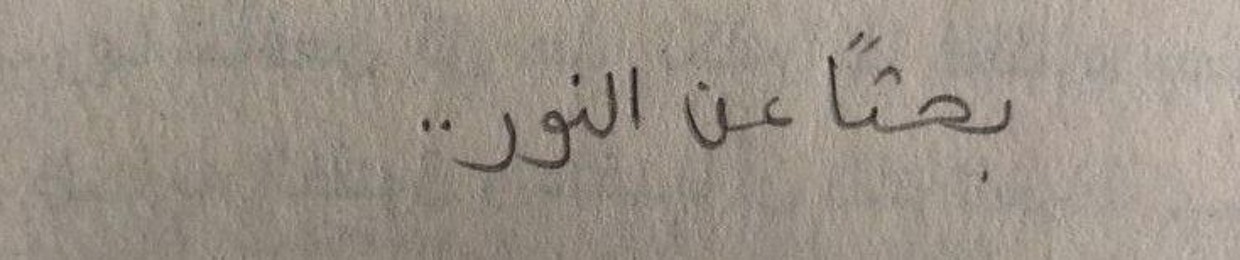 بحثًا عن النور..